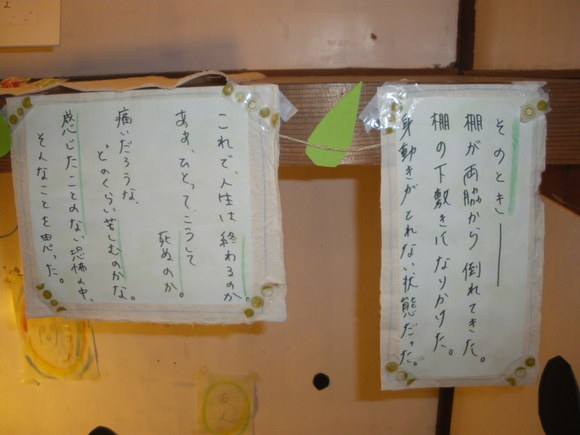 そのとき――
棚が両脇から倒れてきた。
棚の下敷きになりかけた。
身動きがとれない状態だった。
これで、人生は終わるのか。
ああ、ひとって、こうして
死ぬのか。
痛いだろうな、
どのくらい苦しむのかな。
感じたことのない恐怖の中、
そんなことを思った。